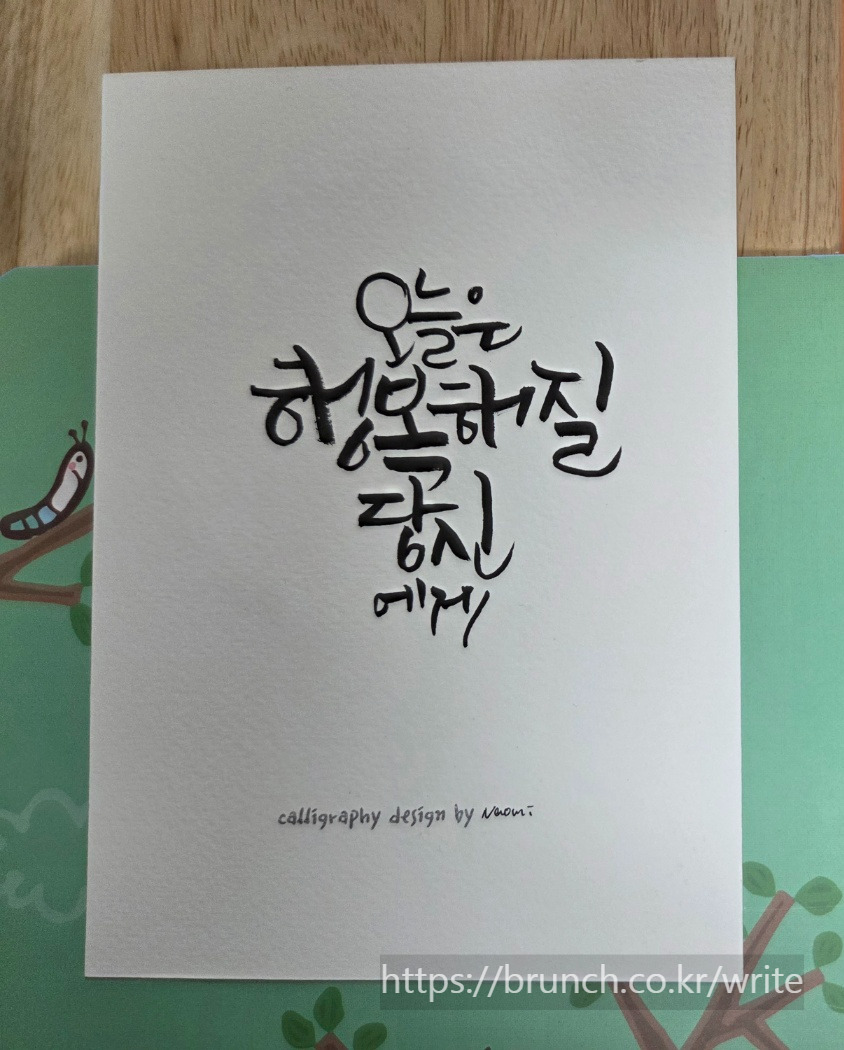 오늘은
행복해질
당신
에게
calligraphy design by Naomi
https://brunch.co.kr/write